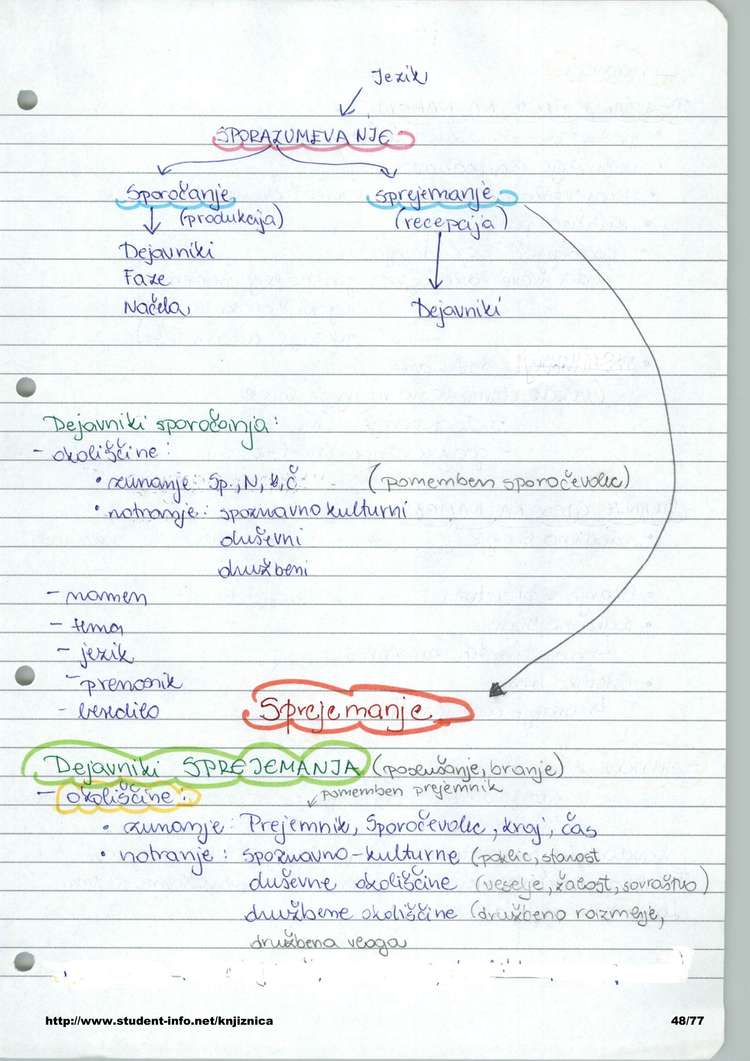 Jezik
SPORAZUMEVANJE
Sporočanje sprejemanje
(produkcija) (recepcija)
Dejavniki
Faze
Načela
Dejavniki
Dejavniki sporočanja:
- okoliščine:
• zunanje: Sp., N, k, Č (pomemben sporočevalec)
• notranje: spoznavnokulturni
duševni
družbeni
- namen
- tema
- jezik
- prenosnik
- besedilo
Sprejemanje
Dejavniki SPREJEMANJA (poslušanje, branje)
- okoliščine: pomemben prejemnik
• zunanje: Prejemnik, Sporočevalec, kraj, čas
• notranje: spoznavno-kulturne (poklic, starost
duševne okoliščine (veselje, žalost, sovraštvo)
družbene okoliščine (družbeno razmerje,
družbena vloga
http://www.student-info.net/knjiznica 48/77